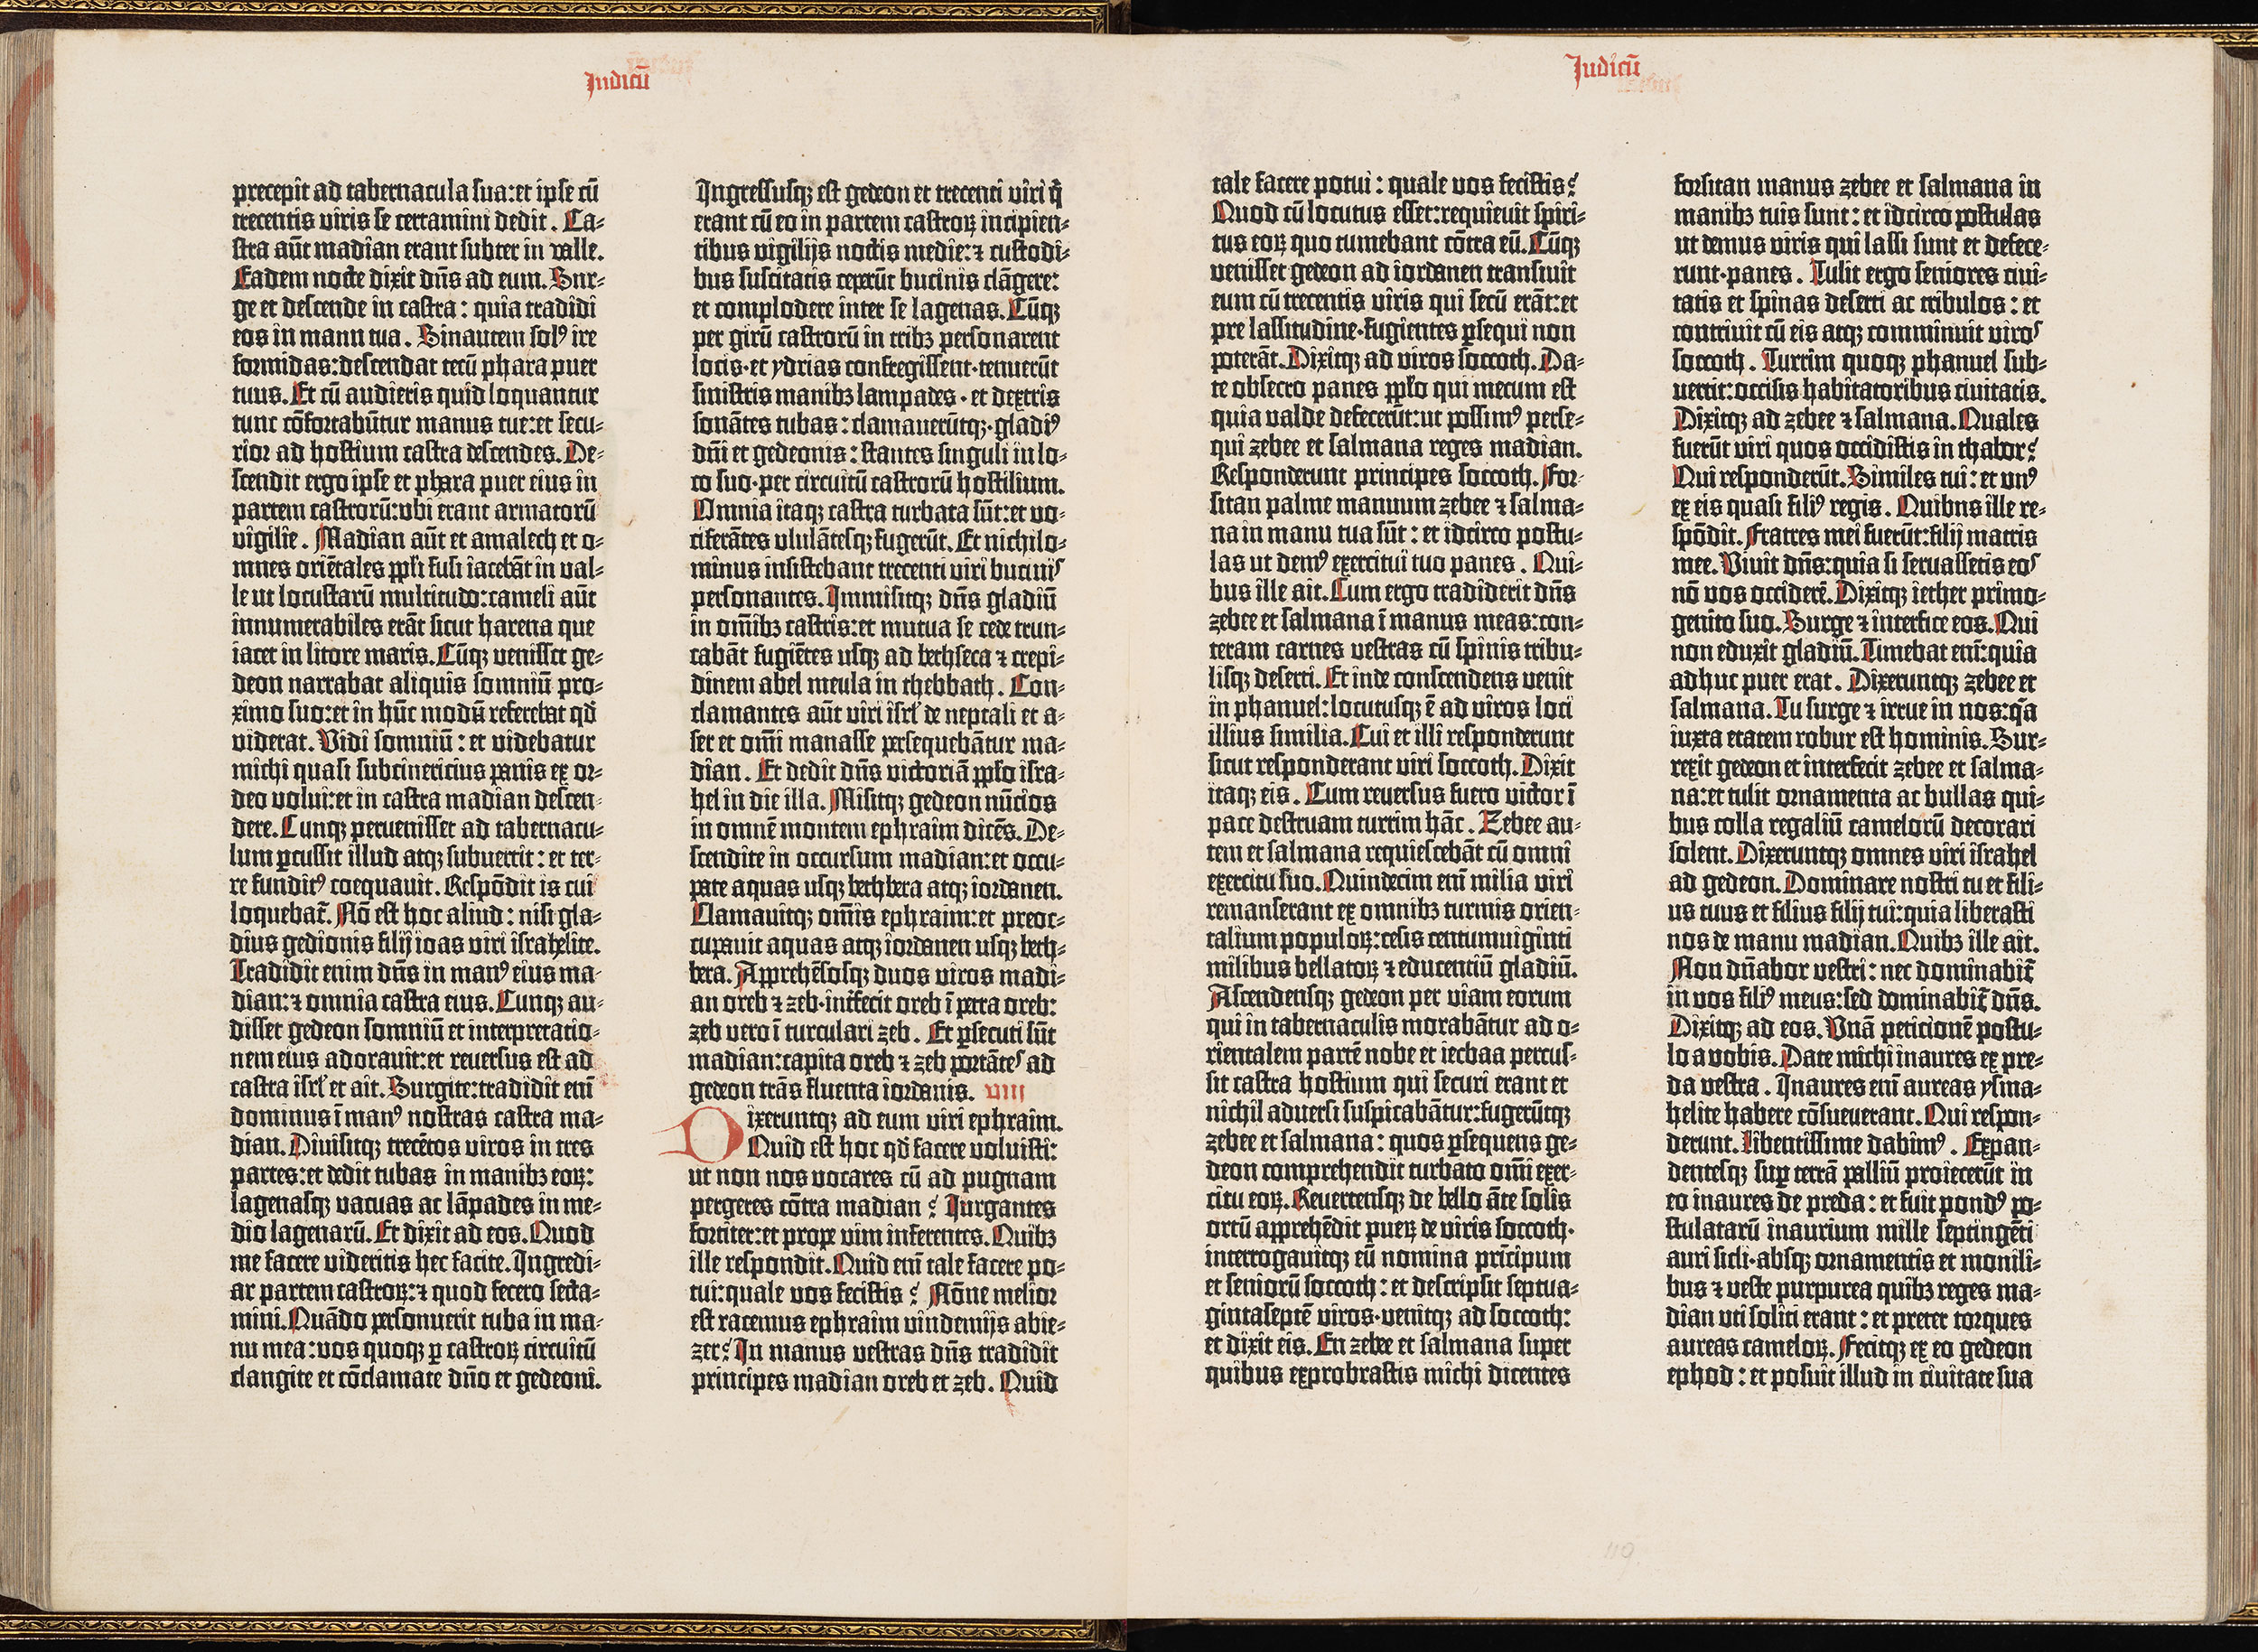 Judicū
precepit ad tabernacula sua:et ipse cū
trecentis viris se certamini dedit. Ca-
stra aūt madian erant subter in valle.
Eadem nocte dixit dn̄s ad eum. Sur-
ge et descende in castra: quia tradidi
eos in manu tua. Sinautem solꝰ ire
formidas:descendat tecū phara puer
tuus. Et cū audieris quid loquantur
tunc cōfortabūtur manus tue:et secu-
rior ad hostium castra descendes. De-
scendit ergo ipse et phara puer eius in
partem castrorū:ubi erant armatorū
vigilie. Madian aūt et amalech et o-
mnes oriētales pp̄li fusi iacebāt in val-
le ut locustarū multitudo:cameli aūt
innumerabiles erāt sicut harena que
iacet in litore maris. Cūqꝫ venisset ge-
deon narrabat aliquis somniū pro-
ximo suo:et in hūc modū referebat qd̄
viderat. Vidi somniū: et videbatur
michi quasi subcinericius panis ex or-
deo volui:et in castra madian descen-
dere. Cunqꝫ pervenisset ad tabernacu-
lum ꝑcussit illud atqꝫ subvertit: et ter-
re funditꝰ coequavit. Respōdit is cui
loquebat̄. Nō est hoc aliud: nisi gla-
dius gedionis filij ioas viri israhelite.
Tradidit enim dn̄s in manꝰ eius ma-
dian:⁊ omnia castra eius. Cunqꝫ au-
disset gedeon somniū et interpretatio-
nem eius adoravit:et reversus est ad
castra isrl̄ et ait. Surgite:tradidit eni̅
dominus ī manꝰ nostras castra ma-
dian. Divisitqꝫ trecētos viros in tres
partes:et dedit tubas in manibꝫ eoꝝ:
lagenasqꝫ vacuas ac lāpades in me-
dio lagenarū. Et dixit ad eos. Quod
me facere videritis hec facite. Ingredi-
ar partem castroꝝ:⁊ quod fecero secta-
mini. Quādo personuerit tuba in ma-
nu mea:vos quoqꝫ ꝑ castroꝝ circuitū
clangite et cōclamate dn̄o et gedeoni.
Ingressusqꝫ est gedeon et trecenti viri q̄
erant cū eo in partem castroꝝ incipien-
tibus vigilijs noctis medie:⁊ custodi-
bus suscitatis ceperūt bucinis clāgere:
et complodere inter se lagenas. Cūqꝫ
per girū castrorū in tribꝫ personarent
locis·et ydrias confregissent·tenuerūt
sinistris manibꝫ lampades·et dextris
sonātes tubas:clamaverūtqꝫ·gladiꝰ
dn̄i et gedeonis:stantes singuli in lo-
co suo·per circuitū castrorū hostilium.
Omnia itaqꝫ castra turbata sūt:et vo-
ciferātes ululātesqꝫ fugerūt. Et nichilo-
minus insistebant trecenti viri bucinis
personantes. Immisitqꝫ dn̄s gladiū
in om̄ibꝫ castris:et mutua se cede trun-
cabāt fugiētes usqꝫ ad bethseca ⁊ crepi-
dinem abel meula in thebbath. Con-
clamantes aūt viri isrl̄ de neptali et a-
ser et om̄i manasse persequebātur ma-
dian. Et dedit dn̄s victoriā pp̄lo isra-
hel in die illa. Misitqꝫ gedeon nūcios
in omnē montem ephraim dicēs. De-
scendite in occursum madian:et occu-
pate aquas usqꝫ bethbera atqꝫ iordanen.
Clamavitqꝫ om̄is ephraim:et preoc-
cupavit aquas atqꝫ iordanen usqꝫ beth-
bera. Apprehēsosqꝫ duos viros madi-
an oreb ⁊ zeb·int̄fecit oreb ī petra oreb:
zeb vero ī turculari zeb. Et ꝑsecuti sūt
madian:capita oreb ⁊ zeb portātes ad
gedeon trās fluenta iordanis. VIII
Dixeruntqꝫ ad eum viri ephraim.
Quid est hoc qd̄ facere voluisti:
ut non nos vocares cū ad pugnam
pergeres cōtra madian? Iurgantes
fortiter:et prope vim inferentes. Quibꝫ
ille respondit. Quid eni̅ tale facere po-
tui:quale vos fecistis? Nōne melior
est racemus ephraim vindemijs abie-
zer? In manus vestras dn̄s tradidit
principes madian oreb et zeb. Quid
Judicū
tale facere potui: quale vos fecistis?
Quod cū locutus esset:requievit spiri-
tus eoꝝ quo tumebant cōtra eū. Cūqꝫ
venisset gedeon ad iordanen transivit
eum cū trecentis viris qui secū erāt:et
pre lassitudine·fugientes ꝑsequi non
poterāt. Dixitqꝫ ad viros soccoth. Da-
te obsecro panes pp̄lo qui mecum est
quia valde defecerūt:ut possimꝰ perse-
qui zebee et salmana reges madian.
Responderunt principes soccoth. For-
sitan palme manuum zebee ⁊ salma-
na in manu tua sūt: et idcirco postu-
las ut demꝰ exercitui tuo panes. Qui-
bus ille ait. Cum ergo tradiderit dn̄s
zebee et salmana ī manus meas:con-
teram carnes vestras cū spinis tribu-
lisqꝫ deserti. Et inde conscendens venit
in phanuel:locutusqꝫ ē ad viros loci
illius similia. Cui et illi responderunt
sicut responderant viri soccoth. Dixit
itaqꝫ eis. Cum reversus fuero victor ī
pace destruam turrim hāc. Zebee au-
tem et salmana requiescebāt cū omni
exercitu suo. Quindecim eni̅ milia viri
remanserant ex omnibꝫ turmis orien-
talium populoꝝ:cesis centumviginti
milibus bellatoꝝ ⁊ educentiū gladiū.
Ascendensqꝫ gedeon per viam eorum
qui in tabernaculis morabātur ad o-
rientalem partē nobe et iecbaa percus-
sit castra hostium qui securi erant et
nichil adversi suspicabātur:fugerūtqꝫ
zebee et salmana: quos ꝑsequens ge-
deon comprehendit turbato om̄i exer-
citu eoꝝ. Revertensqꝫ de bello āte solis
ortū apprehēdit pueꝝ de viris soccoth·
interrogavitqꝫ eū nomina prīcipum
et seniorū soccoth: et descripsit septua-
gintaseptē viros·venitqꝫ ad soccoth:
et dixit eis. En zebee et salmana super
quibus exprobrastis michi dicentes
forsitan manus zebee et salmana in
manibꝫ tuis sunt: et idcirco postulas
ut demus viris qui lassi sunt et defece-
runt·panes. Tulit ergo seniores civi-
tatis et spinas deserti ac tribulos: et
contrivit cū eis atqꝫ comminuit viros
soccoth. Turrim quoqꝫ phanuel sub-
vertit:occisis habitatoribus civitatis.
Dixitqꝫ ad zebee ⁊ salmana. Quales
fuerūt viri quos occidistis in thabor?
Qui responderūt. Similes tui: et unꝰ
ex eis quasi filiꝰ regis. Quibus ille re-
spōdit. Fratres mei fuerūt:filij matris
mee. Vivit dn̄s:quia si servassetis eos
nō vos occiderē. Dixitqꝫ iether primo-
genito suo. Surge ⁊ interfice eos. Qui
non eduxit gladiū. Timebat eni̅:quia
adhuc puer erat. Dixeruntqꝫ zebee et
salmana. Tu surge ⁊ irrue in nos:q̄a
iuxta etatem robur est hominis. Sur-
rexit gedeon et interfecit zebee et salma-
na:et tulit ornamenta ac bullas qui-
bus colla regaliū camelorū decorari
solent. Dixeruntqꝫ omnes viri israhel
ad gedeon. Dominare nostri tu et fili-
us tuus et filius filij tui:quia liberasti
nos de manu madian. Quibꝫ ille ait.
Non dn̄abor vestri: nec dominabit̄
in vos filiꝰ meus:sed dominabit̄ dn̄s.
Dixitqꝫ ad eos. Unā peticionē postu-
lo a vobis. Date michi inaures ex pre-
da vestra. Inaures eni̅ aureas ysma-
helite habere cōsueverant. Qui respon-
derunt. Libentissime dabimꝰ. Expan-
dentesqꝫ suꝑ terrā palliū proiecerūt in
eo inaures de preda: et fuit pondꝰ po-
stulatarū inaurium mille septingēti
auri sicli·absqꝫ ornamentis et monili-
bus ⁊ veste purpurea quibꝫ reges ma-
dian uti soliti erant: et preter torques
aureas cameloꝝ. Fecitqꝫ ex eo gedeon
ephod: et posuit illud in civitate sua
119.